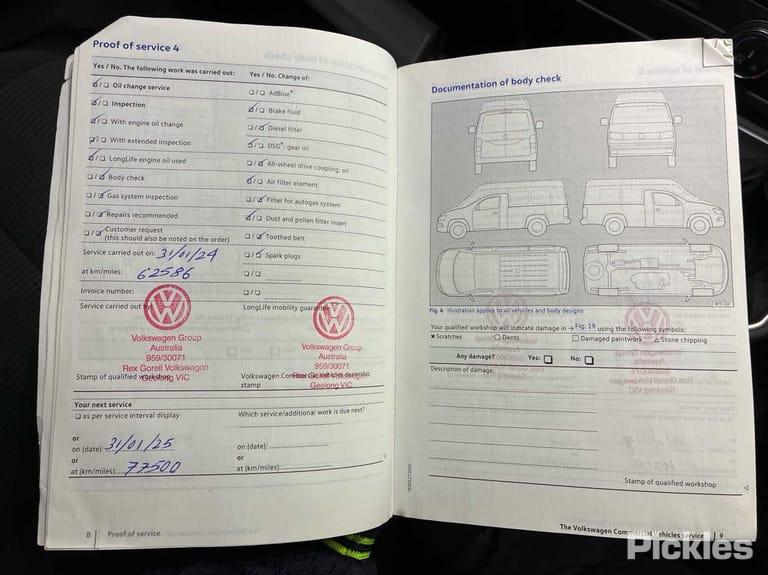 Proof of service 4
Yes / No. The following work was carried out:
Yes / No. Change of:
Oil change service
Inspection
With engine oil change
With extended inspection
LongLife engine oil used
Body check
Gas system inspection
Repairs recommended
Customer request
(this should also be noted on the order)
AdBlue®
Brake fluid
Diesel filter
DSG®: gear oil
All-wheel drive coupling: oil
Air filter element
Filter for autogas system
Dust and pollen filter insert
Toothed belt
Spark plugs
Service carried out on: 31/01/24
at km/miles: 62586
Invoice number:
Service carried out by:
Volkswagen Group
Australia
959/30071
Rex Gorell Volkswagen
Geelong VIC
Stamp of qualified workshop
LongLife mobility guarantee
Volkswagen Group
Australia
959/30071
Rex Gorell Volkswagen
Geelong VIC
Volkswagen Commercial Vehicles dealership
stamp
Your next service
as per service interval display
or
on (date): 31/01/25
or
at (km/miles): 77500
Which service/additional work is due next?
on (date):
or
at (km/miles):
8 Proof of service
Documentation of body check
Fig. 4 Illustration applies to all vehicles and body designs
Your qualified workshop will indicate damage in → Fig. 19 using the following symbols:
× Scratches ○ Dents □ Damaged paintwork △ Stone chipping
Any damage? Yes: No:
Description of damage:
Stamp of qualified workshop
The Volkswagen Commercial Vehicles service 9
Pickles